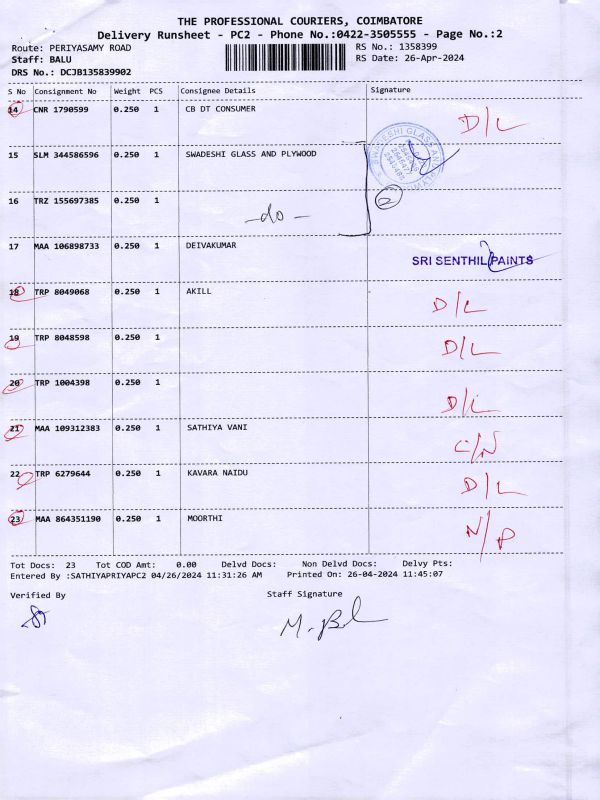 THE PROFESSIONAL COURIERS, COIMBATORE
Delivery Runsheet - PC2 - Phone No.:0422-3505555 - Page No.:2
Route: PERIYASAMY ROAD RS No.: 1358399
Staff: BALU RS Date: 26-Apr-2024
DRS No.: DCJB135839902
S No Consignment No Weight PCS Consignee Details Signature
14 CNR 1790599 0.250 1 CB DT CONSUMER D/L
15 SLM 344586596 0.250 1 SWADESHI GLASS AND PLYWOOD
16 TRZ 155697385 0.250 1 -do- 2
17 MAA 106898733 0.250 1 DEIVAKUMAR SRI SENTHIL PAINTS
18 TRP 8049068 0.250 1 AKILL D/L
19 TRP 8048598 0.250 1 D/L
20 TRP 1004398 0.250 1 D/L
21 MAA 109312383 0.250 1 SATHIYA VANI C/N
22 TRP 6279644 0.250 1 KAVARA NAIDU D/L
23 MAA 864351190 0.250 1 MOORTHI N/P
Tot Docs: 23 Tot COD Amt: 0.00 Delvd Docs: Non Delvd Docs: Delvy Pts:
Entered By :SATHIYAPRIYAPC2 04/26/2024 11:31:26 AM Printed On: 26-04-2024 11:45:07
Verified By Staff Signature